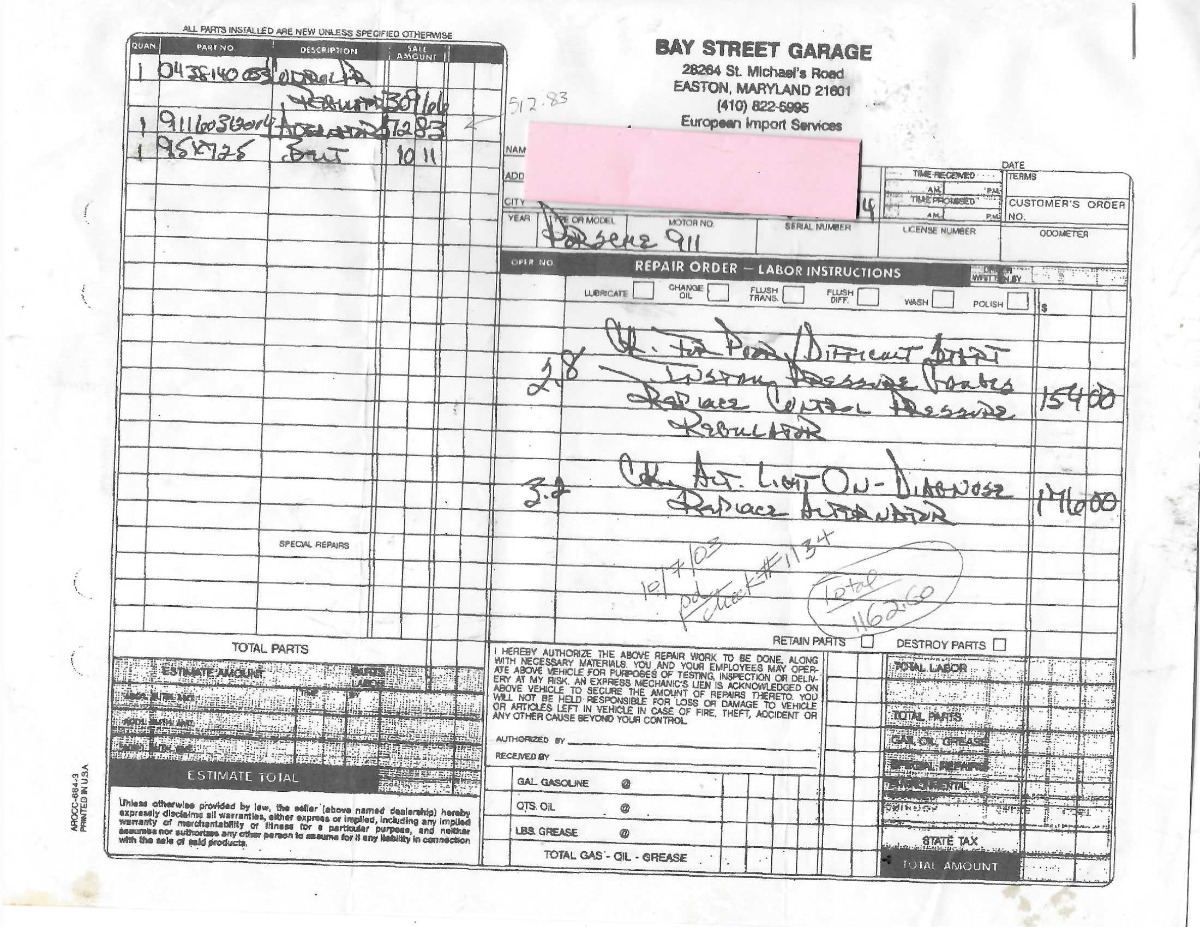 ALL PARTS INSTALLED ARE NEW UNLESS SPECIFIED OTHERWISE
QUAN. PART NO. DESCRIPTION SALE AMOUNT
1 0438140 CONTROL PR
REBUILT 309 66
1 ALTERNATOR 512 83
512.83
1 9.5X725 BELT 10 11
SPECIAL REPAIRS
TOTAL PARTS
ESTIMATE AMOUNT PARTS LABOR
ESTIMATE TOTAL
Unless otherwise provided by law, the seller (above named dealership) hereby
expressly disclaims all warranties, either express or implied, including any implied
warranty of merchantability or fitness for a particular purpose, and neither
assumes nor authorizes any other person to assume for it any liability in connection
with the sale of said products.
PRINTED IN U.S.A
BAY STREET GARAGE
28264 St. Michael's Road
EASTON, MARYLAND 21601
(410) 822-5995
European Import Services
NAM
ADD
CITY
DATE
TIME RECEIVED A.M. P.M.
TERMS
TIME PROMISED A.M. P.M.
CUSTOMER'S ORDER NO.
YEAR OR MODEL MOTOR NO. SERIAL NUMBER LICENSE NUMBER ODOMETER
PORSCHE 911
OPER NO. REPAIR ORDER — LABOR INSTRUCTIONS
LUBRICATE CHANGE OIL FLUSH TRANS. FLUSH DIFF. WASH POLISH $
CK. FOR POOR/DIFFICULT START
2.8 INSTALL PRESSURE GAUGES 154 00
REPLACE CONTROL PRESSURE
REGULATOR
CK. ALT. LIGHT ON - DIAGNOSE
3.2 REPLACE ALTERNATOR 176 00
10/7/03
pd
check #1134
Total
1162.60
RETAIN PARTS DESTROY PARTS
I HEREBY AUTHORIZE THE ABOVE REPAIR WORK TO BE DONE, ALONG
WITH NECESSARY MATERIALS. YOU AND YOUR EMPLOYEES MAY OPER-
ATE ABOVE VEHICLE FOR PURPOSES OF TESTING, INSPECTION OR DELIV-
ERY AT MY RISK. AN EXPRESS MECHANIC'S LIEN IS ACKNOWLEDGED ON
ABOVE VEHICLE TO SECURE THE AMOUNT OF REPAIRS THERETO. YOU
WILL NOT BE HELD RESPONSIBLE FOR LOSS OR DAMAGE TO VEHICLE
OR ARTICLES LEFT IN VEHICLE IN CASE OF FIRE, THEFT, ACCIDENT OR
ANY OTHER CAUSE BEYOND YOUR CONTROL.
AUTHORIZED BY
RECEIVED BY
GAL. GASOLINE @
QTS. OIL @
LBS. GREASE @
TOTAL GAS - OIL - GREASE
TOTAL LABOR
TOTAL PARTS
GAS, OIL, GREASE
STATE TAX
TOTAL AMOUNT